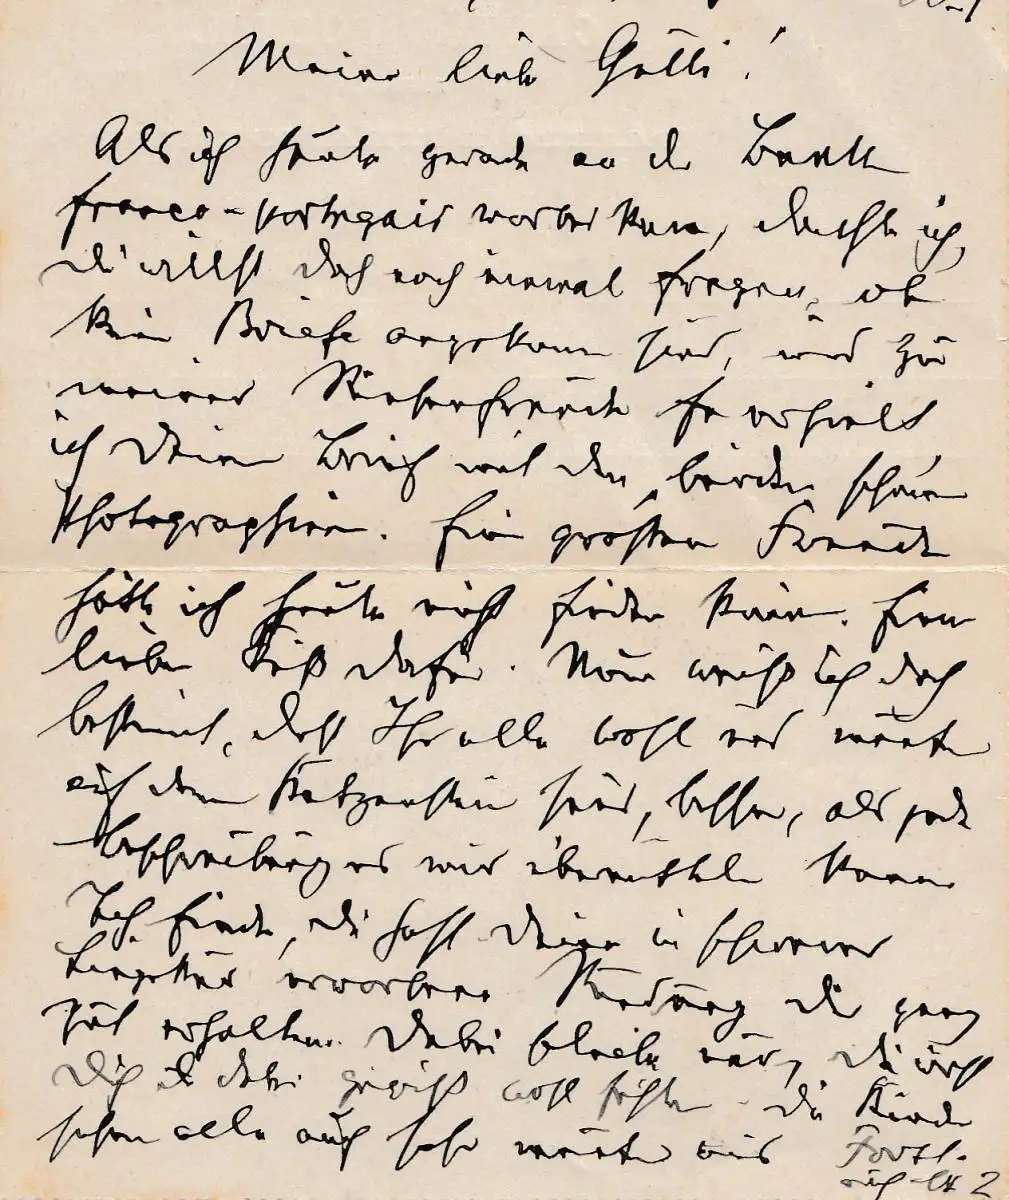 Meine liebe Gütti!
Als ich heute gerade an der Bank
franco-portugais vorbei kam, dachte ich,
du willst doch noch einmal fragen, ob
kein Briefe angekommen sind, und zu
meiner Riesenfreude erhielt
ich Deinen Brief mit den beiden schönen
Photographien. Eine grössere Freude
hätte ich heute nicht finden können. Einen
lieben Kuß dafür. Nun weiß ich doch
bestimmt, daß Ihr alle wohl und munter
auf dem Katzenstein seid, besser, als jede
Beschreibung es mir übermitteln kann.
Ich finde, du hast Deine in schwerer
erworbene Rundung dir ganz
gut erhalten. Dabei bleibe nur, du wirst
Dich dabei gewiß wohl fühlen. Die Kinder
sehen alle auch sehr munter aus
2